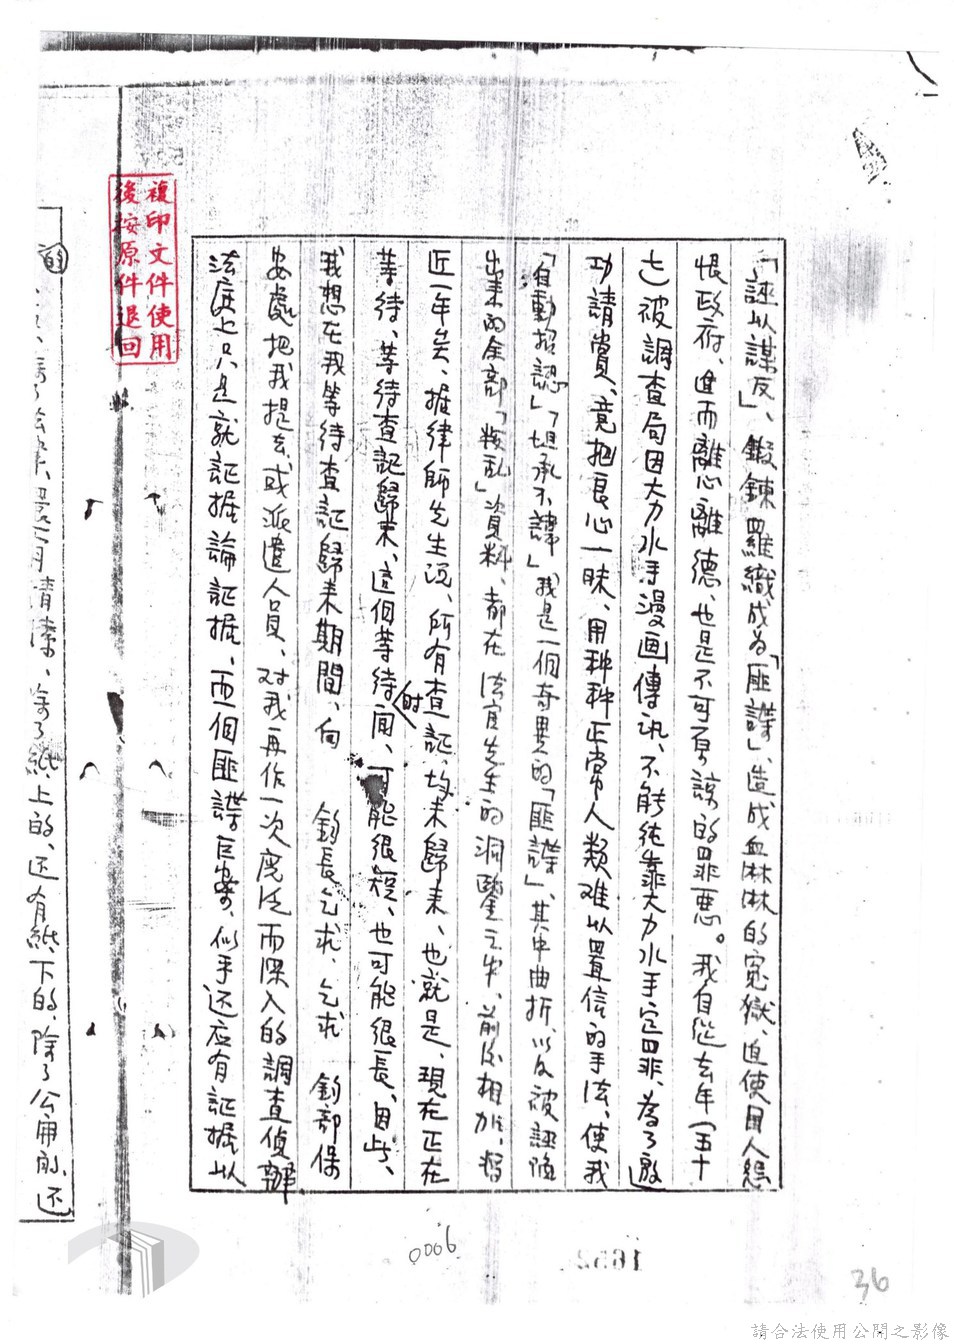 「誣以謀反」、鍛鍊羅織成為「匪諜」、造成血淋淋的寃獄、迫使國人怨
恨政府、進而離心離德、也是不可原諒的罪惡。我自從去年（五十
七）被調查局因大力水手漫画傳訊、不能純靠大力水手定罪、為了邀
功請賞、竟把良心一昧、用种种正常人類难以置信的手法、使我
「自動招認」「坦承不諱」我是一個奇異的「匪諜」、其中曲折、以及被誣陷
出来的全部「叛乱」資料、都在 法官先生的洞鑒之中、前後相加、将
近一年矣、据律師先生说、所有查証、均未歸来、也就是、現在正在
等待、等待查証歸来、這個等待時间、可能很短、也可能很長、因此、
我想在我等待查証歸来期間、向 鈞長乞求、乞求 鈞部保
安處把我提去、或派遣人員、对我再作一次廣泛而深入的調查偵辦
法庭上只是就証据論証据、而個匪諜巨案、似乎还应有証据以
的
紙上的、还有紙下的、除了公用的、还
複印文件使用
後按原件退回
0006
36
請合法使用公開之影像